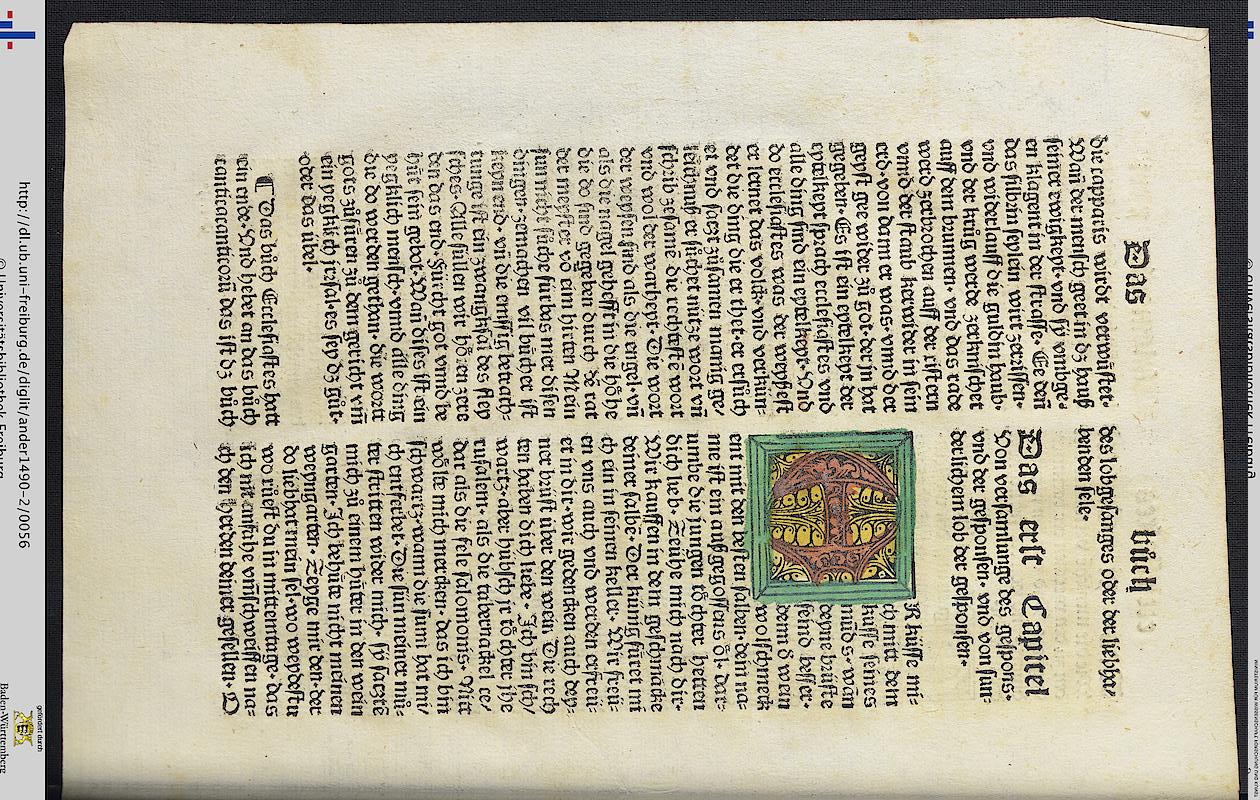 Das
buͦch
die capparis wirdt verwuͤstet.
Wañ der mensch geet in dz hauß
seiner ewigkeyt. vnd sÿ vmbge/
en klagent in der strasse. Ee den
das silbrin seylein wirt zerrissen.
vnd widerlaufft die guldin haub.
vnd der kruͦg werde zerknischet
auff dem brunnen. vnd das rade
werd zerbrochen auff der cistern
vnnd der staub kerwider in sein
erd. von dann er was. vnnd der
geyst gee wider zuͦ got. der jn hat
gegeben. Es ist ein eytelkeyt der
eytelkeyt sprach ecclesiastes vnd
alle ding sind ein eytelkeyt. Vnd
do ecclesiastes was der weysest
er lernet das volck. vnd verkün-
det die ding die er thet. er ersuͦch
et vnd saczt zuͦsamen manig ge/
leichnuß er suͦchet nütze wort vñ
schrib zesamē die rechtestē wort
vnd vol der warheyt. Die wort
der weysen sind als die engel. vñ
als die nägel gehefft in die hoͤhe
die do sind gegeben durch dē rat
der meyster võ eim hirten Mein
sun nicht suͦche fürbas mer disen
dingen. zemachen vil buͤcher ist
keyn end. vñ die emssig betrach-
tunge ist ein zwangksal des fley
sches. Alle süllen wir hoͤren zere
den das end. Fürcht got vnnd be
hüt sein gebot. Wañ dises ist ein
yegklich mensch. vnnd alle ding
die do werden gethan. die wirtt
gots zuͦfüren zuͦ dem gericht vm̄
ein yegklich irrsal. es sey dz guͦt.
oder das übel.
¶ Das buͦch Ecclesiastes hatt
ein ende. Vnd hebet an das buͦch
cantica canticorū das ist dz buͦch
des lobgesanges oder der liebha/
benden sele.
Das erst Capitel
Von versamlunge des gespons.
vnd der gesponsen. vnd von sun-
derlichem lob der gesponsen.
ER kusse mi-
ch mitt dem
kusse seines
mūds. wañ
deyne brüste
seind besser.
denn d wein
wolschmeck
ent mit den besten salben. dein na-
me ist ein außgegossens oͤl. dar-
umbe die jungen toͤchter hetten
dich lieb. Zeühe mich nach dir.
Wir lauffen in dem geschmacke
deiner salbe. Der künig füret mi
ch ein in seinen keller. Wir freü-
en vns auch vnd werden erfreü-
et in dir. wir gedencken auch dey-
ner brüst über den wein Die rech
ten haben dich liebe. Jch bin sch/
wartz. aber hübsch jr toͤchter ihe
rusalem. als die tabernackel ce/
dar als die fele salomonis. Nitt
woͤlt mich mercken. das ich bin
schwartz. wann die sunn hat mi/
ch entferbet. Die sün meiner muͦ-
ter stritten wider mich. sÿ saczte
mich zuͦ einem huͤter in den wein
garten. Jch behüte nicht meinen
weyngarten. Zeyge mir den. der
do liebhat mein sel. wo weydestu
wo ruͤest du in mittemtage. das
ich nit anfahe vm̄schweiffen na-
ch den herden deiner gesellen. O
http://dl.ub.uni-freiburg.de/diglit/ander1490-2/0056
© Universitätsbibliothek Freiburg
gefördert durch
Baden-Württemberg